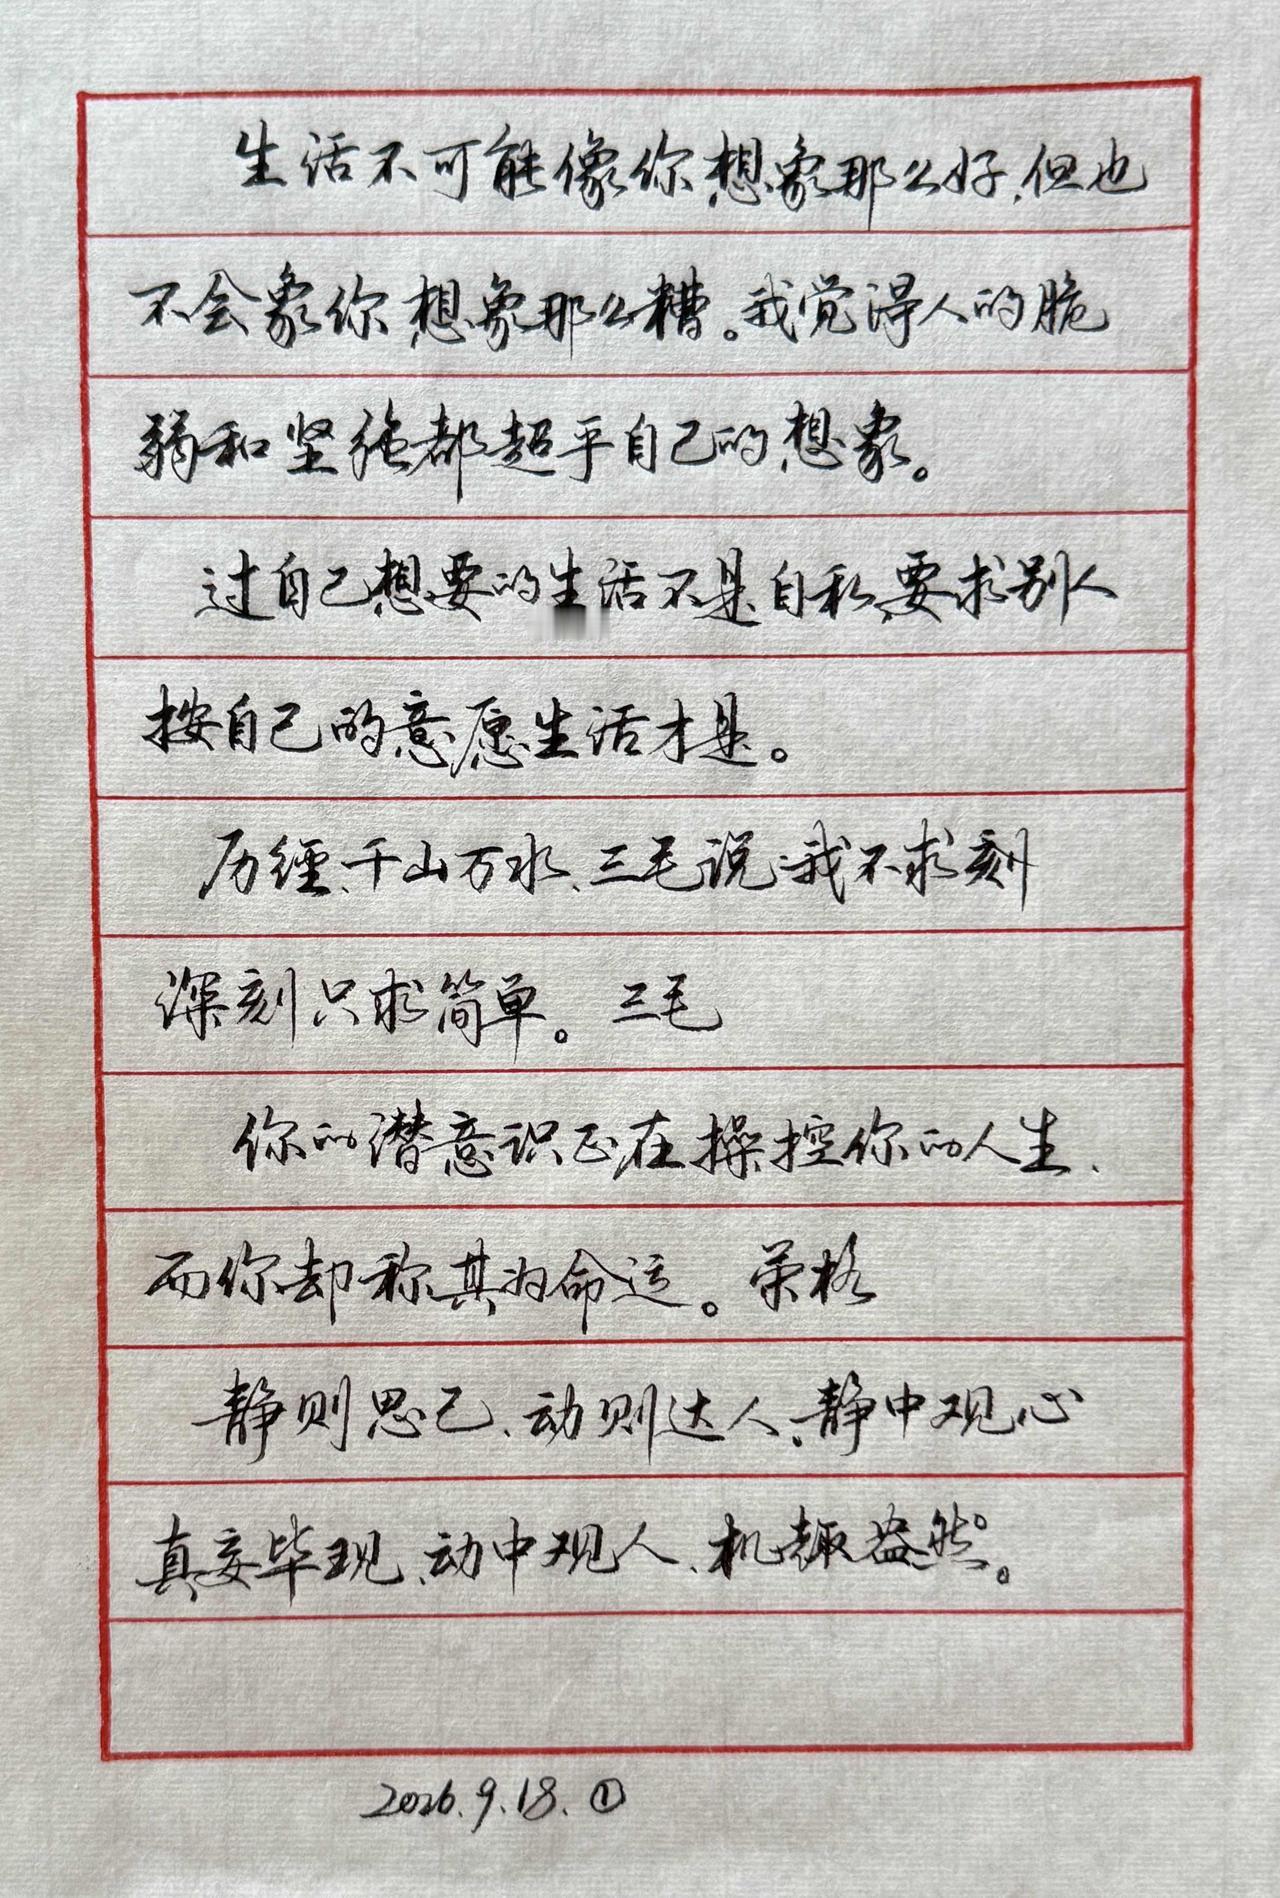 生活不可能像你想象那么好,但也
不会象你想象那么糟。我觉得人的脆
弱和坚强都超乎自己的想象。
过自己想要的生活不是自私,要求别人
按自己的意愿生活才是。
历经千山万水,三毛说:我不求刻
深刻只求简单。三毛
你的潜意识正在操控你的人生,
而你却称其为命运。荣格
静则思己,动则达人,静中观心
真妄毕现,动中观人,机趣盎然。
2026.9.18.①